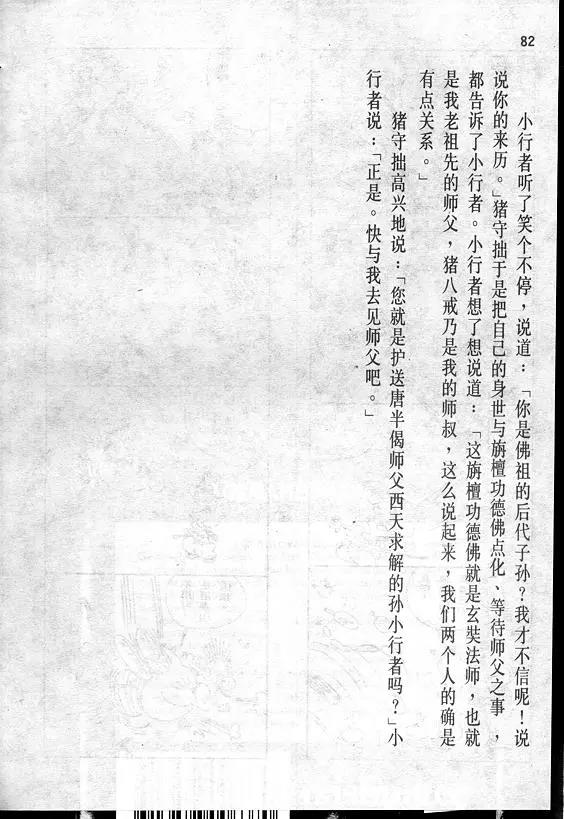 82
小行者听了笑个不停，说道：「你是佛祖的后代子孙？我才不信呢！说
说你的来历。」猪守拙于是把自己的身世与旃檀功德佛点化、等待师父之事，
都告诉了小行者。小行者想了想说道：「这旃檀功德佛就是玄奘法师，也就
是我老祖先的师父，猪八戒乃是我的师叔，这么说起来，我们两个人的确是
有点关系。」
猪守拙高兴地说：「您就是护送唐半偈师父西天求解的孙小行者吗？」小
行者说：「正是。快与我去见师父吧。」